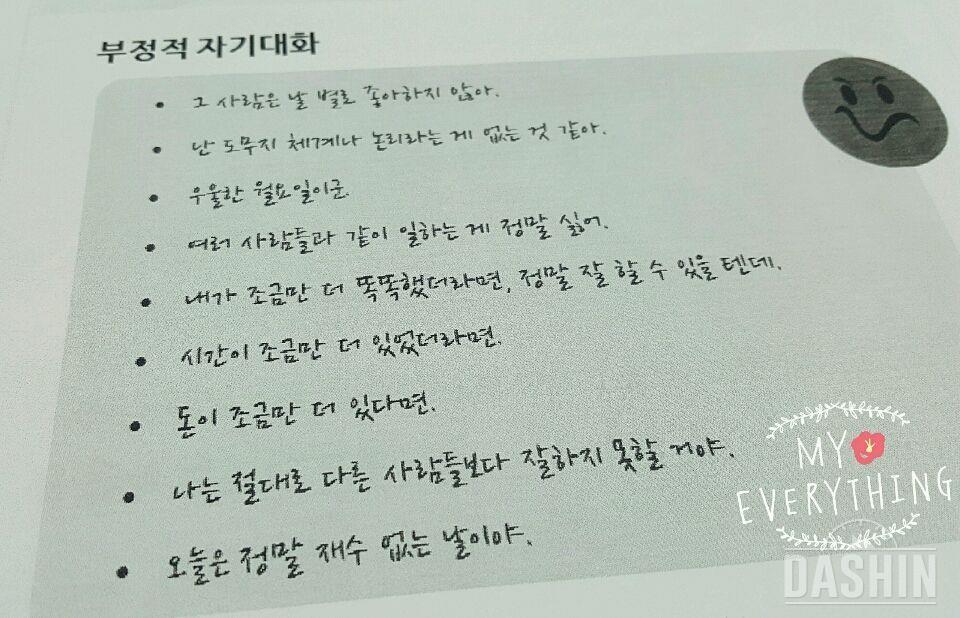 부정적 자기대화
• 그 사람은 날 별로 좋아하지 않아.
• 난 도무지 체계나 논리라는 게 없는 것 같아.
• 우울한 월요일이군.
• 여러 사람들과 같이 일하는 게 정말 싫어.
• 내가 조금만 더 똑똑했더라면, 정말 잘 할 수 있을 텐데.
• 시간이 조금만 더 있었더라면.
• 돈이 조금만 더 있다면.
• 나는 절대로 다른 사람들보다 잘하지 못할 거야.
• 오늘은 정말 재수 없는 날이야.
MY
EVERYTHING
DASHIN